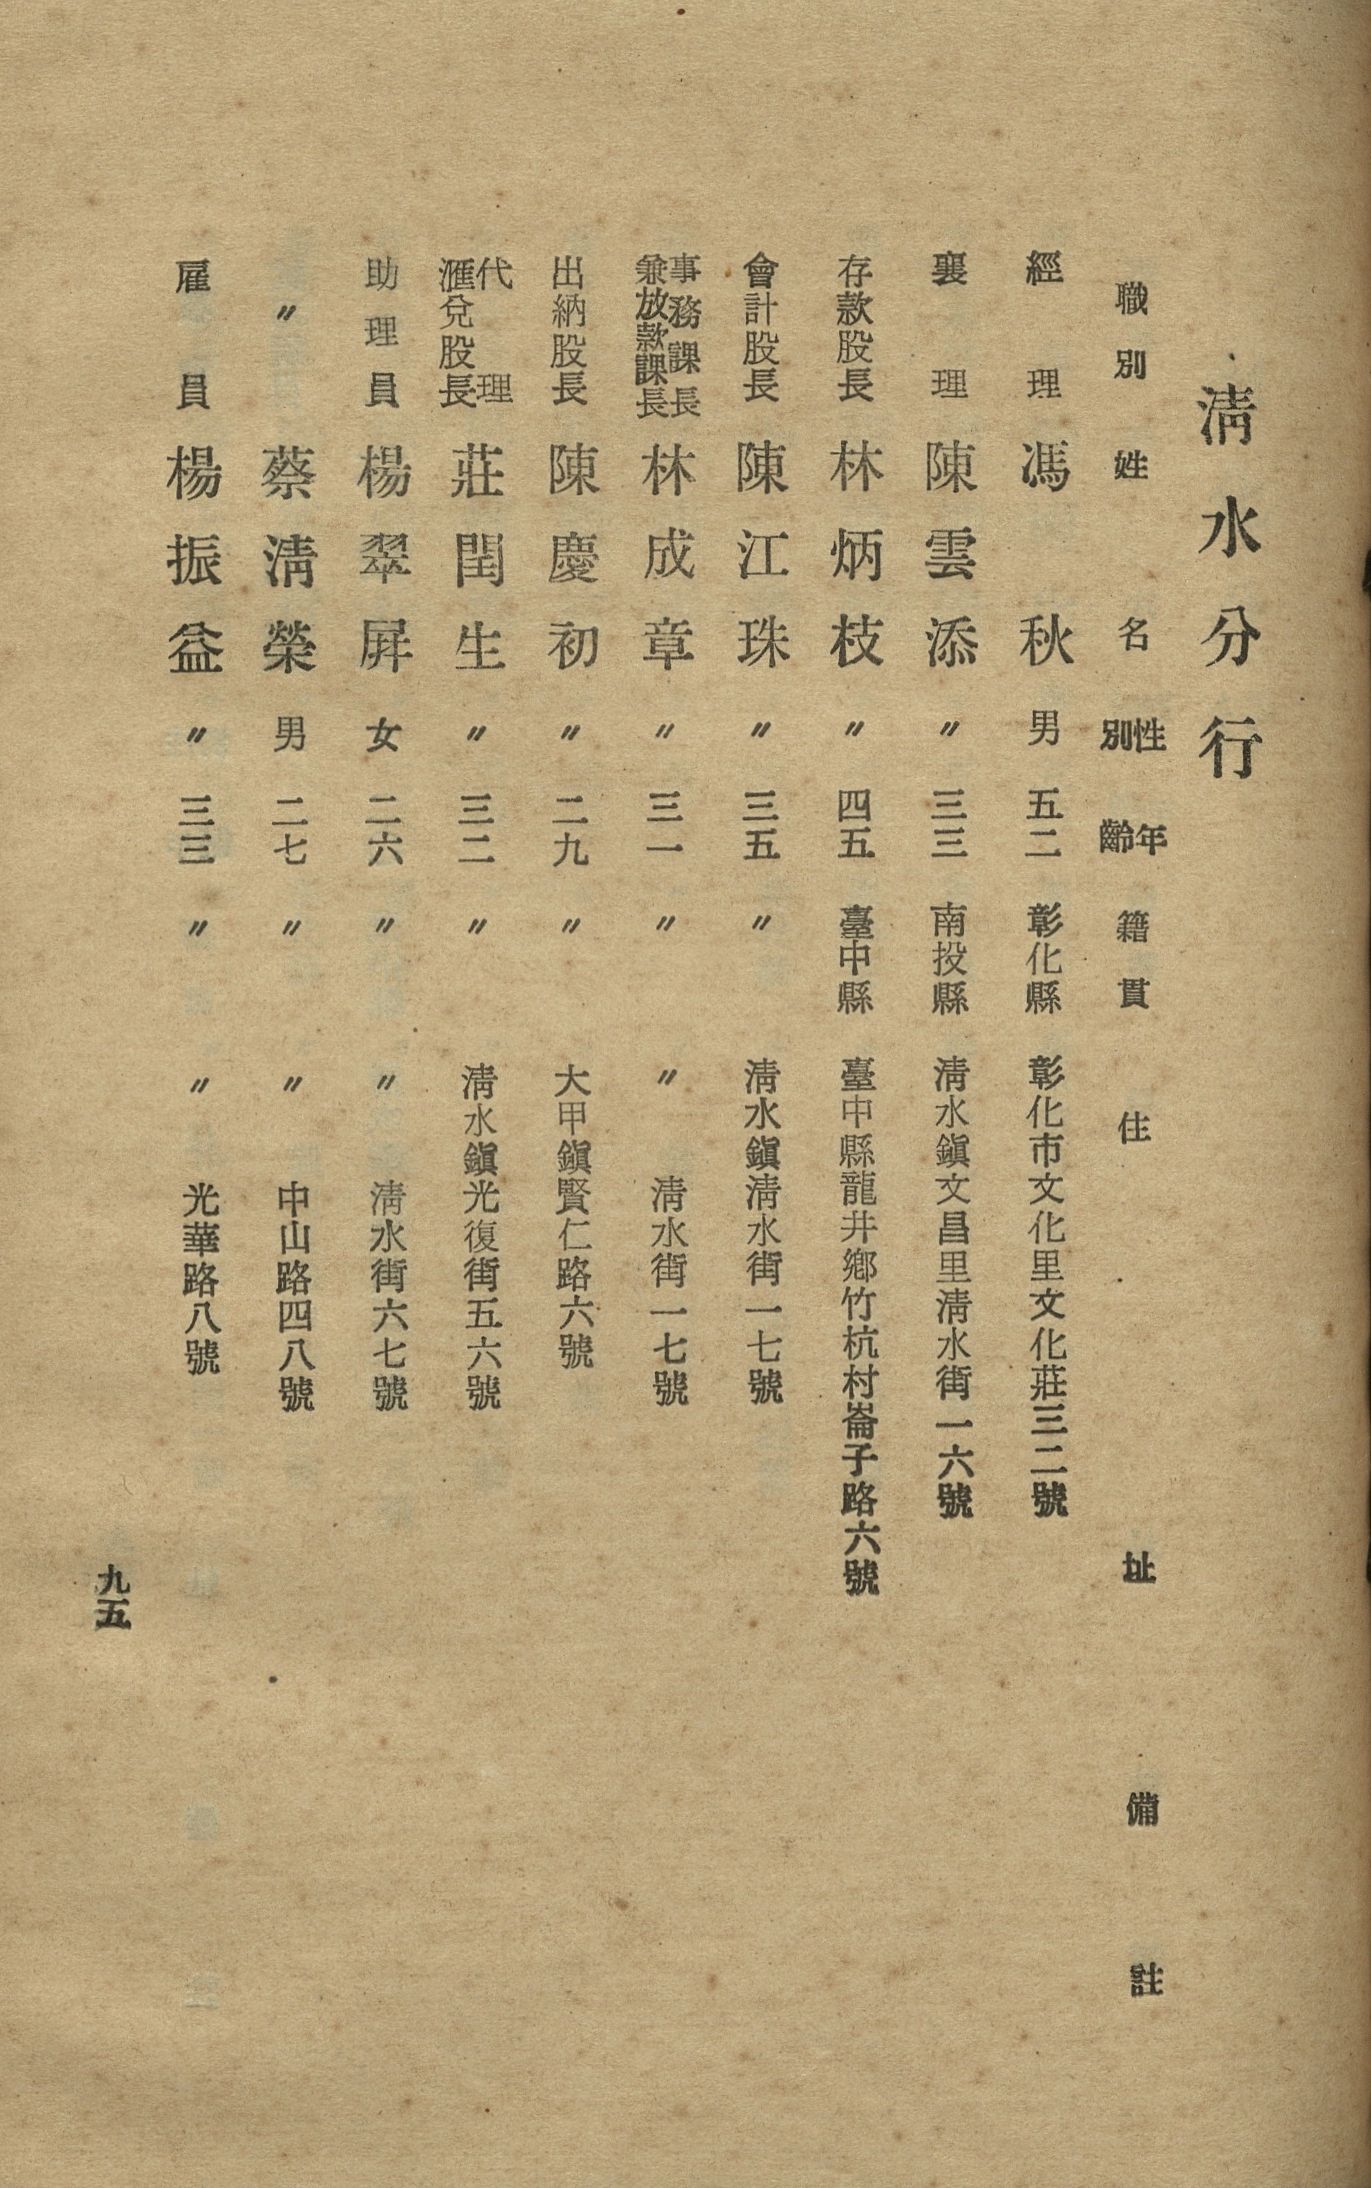 淸水分行
職別 姓名 性別 年齡 籍貫 住址 備註
經理 馮秋 男 五二 彰化縣 彰化市文化里文化莊三二號
襄理 陳雲添 〃 三三 南投縣 淸水鎭文昌里淸水街一六號
存款股長 林炳枝 〃 四五 臺中縣 臺中縣龍井鄉竹杭村崙子路六號
會計股長 陳江珠 〃 三五 〃 淸水鎭淸水街一七號
事務課長兼放款課長 林成章 〃 三一 〃 〃 淸水街一七號
出納股長 陳慶初 〃 二九 〃 大甲鎭賢仁路六號
代理滙兌股長 莊閏生 〃 三二 〃 淸水鎭光復街五六號
助理員 楊翠屛 女 二六 〃 〃 淸水街六七號
〃 蔡淸榮 男 二七 〃 〃 中山路四八號
雇員 楊振益 〃 三三 〃 〃 光華路八號
九五